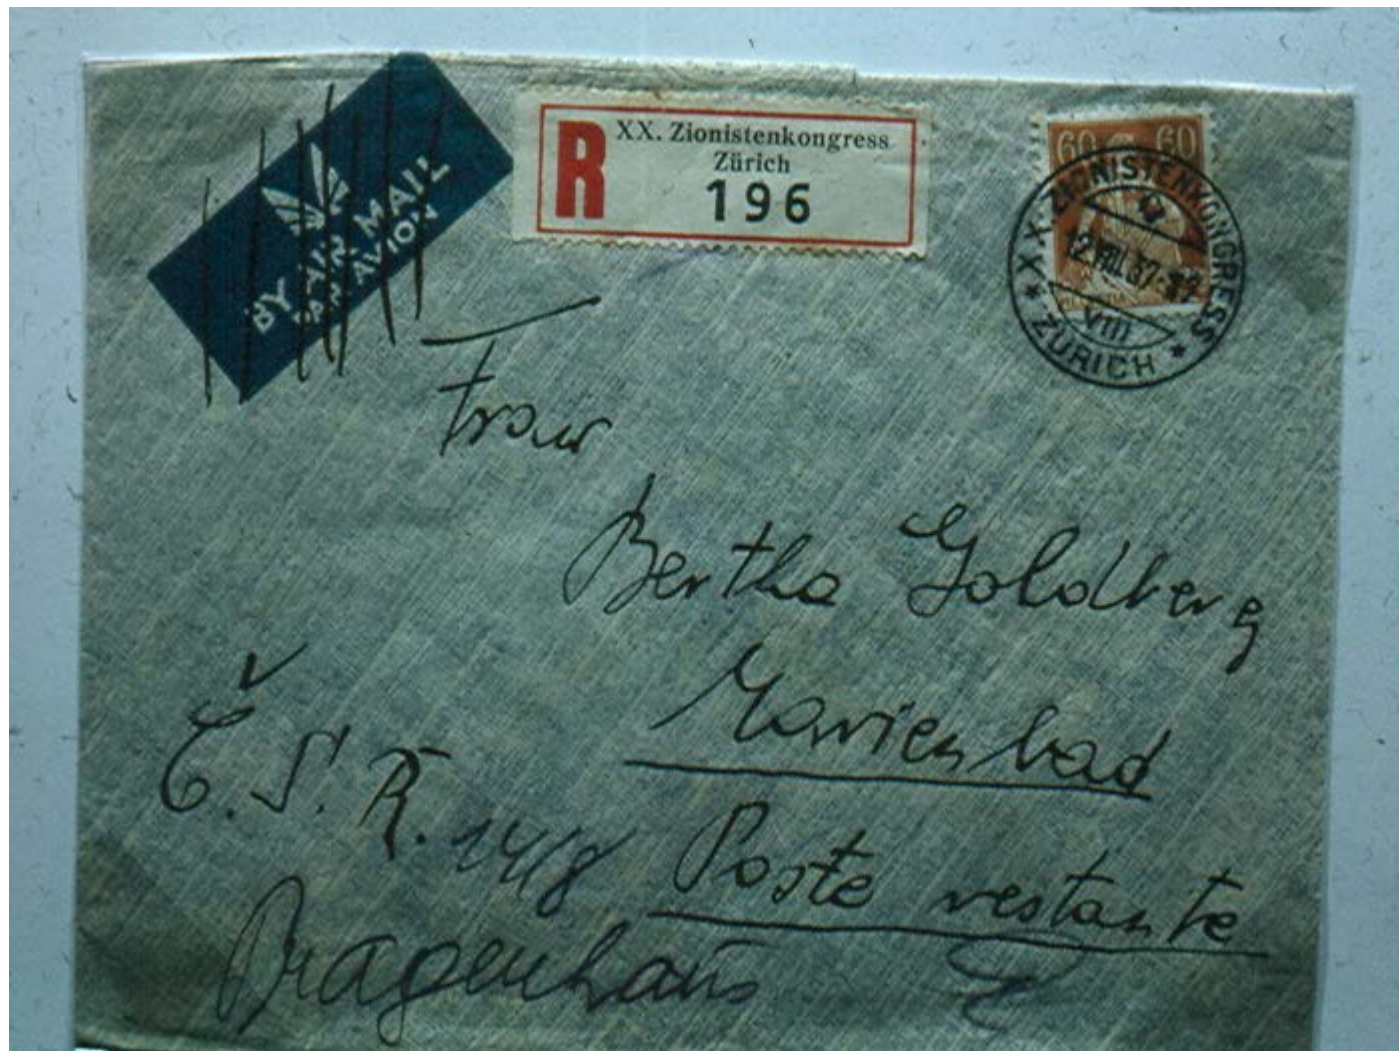 BY AIR MAIL
PAR AVION
R
XX. Zionistenkongress
Zürich
196
60 60
HELVETIA
XX. ZIONISTENKONGRESS
12.VIII.37
VIII
* ZÜRICH *
Frau
Bertha Goldberg
Marienbad
Č.S.R. 14/8 Poste restante